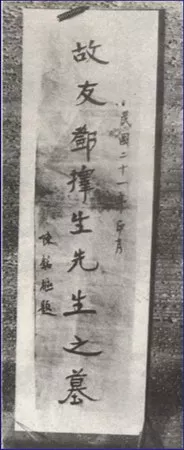 民國二十一年 月
故友鄧擇生先生之墓
陳銘樞題